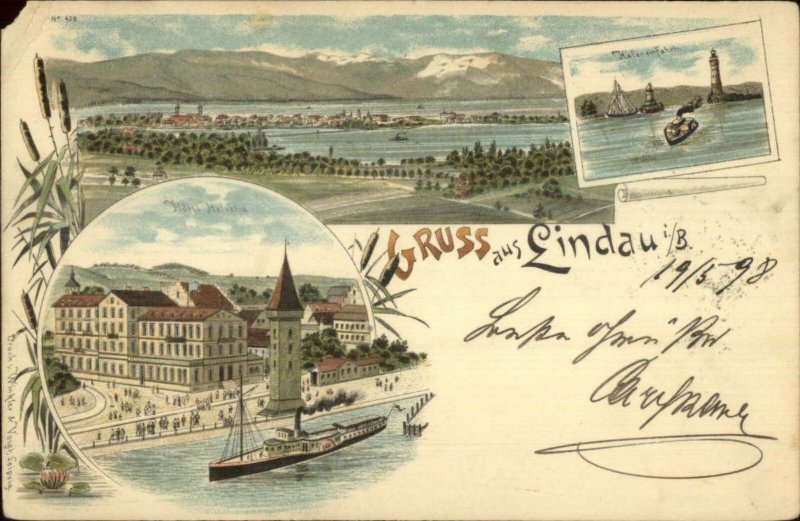 No. 628
Hafeneinfahrt.
Hôtel Helvetia
GRUSS aus Lindau i/B.
19/5 98
Beste Grüße
Druck v. Winkler & Voigt, Leipzig.